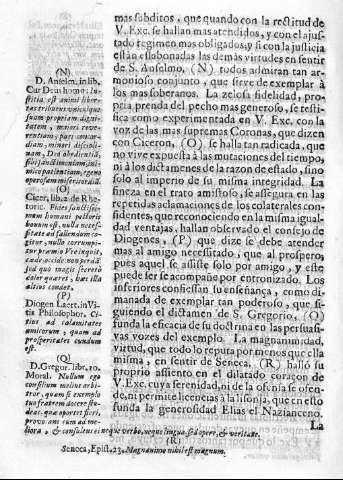 mas subditos, que quando con la rectitud de
V. Exc. se hallan mas atendidos, y con el ajus-
tado regimen mas obligados, y si con la justicia
están eslabonadas las demás virtudes en sentir
de S. Anselmo, (N) todos admiran tan ar-
monioso conjunto, que sirve de exemplar à
los mas soberanos. La zelosa fidelidad, pro-
pria prenda del pecho mas generoso, se testi-
fica como experimentada en V. Exc. con la
voz de las mas supremas Coronas, que dizen
con Ciceron, (O) se halla tan radicada, que
no vive expuesta à las mutaciones del tiempo,
ni à los dictamenes de la razon de estado, sino
solo al imperio de su misma integridad. La
fineza en el trato amistoso, se assegura en las
repetidas aclamaciones de los colaterales con-
fidentes, que reconociendo en la misma igual-
dad ventajas, hallan observado el consejo de
Diogenes, (P) que dize se debe atender
mas al amigo necessitado, que al prospero,
pues aquel se assiste solo por amigo, y este
puede ser se acompañe por entronizado. Los
inferiores confiessan su enseñança, como di-
manada de exemplar tan poderoso, que si-
guiendo el dictamen de S. Gregorio, (Q)
funda la eficacia de su doctrina en las persuasi-
vas vozes del exemplo. La magnanimidad,
virtud, que todo lo reputa por menos que ella
misma, en sentir de Seneca, (R) hallò su
proprio assiento en el dilatado coraçon de
V. Exc. cuya serenidad, ni de la osania se ofen-
de, ni permite licencias à la lisonja, que en esso
funda la generosidad Elias el Nazianceno.
La
(N)
D. Anselm. in lib.
Cur Deus homo: Iu-
stitia est animi liber-
tas tribuens vnicuique
suam propriam digni-
tatem, maiori reve-
rentiam, pari concor-
diam, minori discipli-
nam, Deo obedientiã,
sibi sanctimoniam, ini-
mico patientiam, egeno
operosam misericordiã.
(O)
Cicer. lib. 2. de Rhe-
toric. Fides sanctissi-
mum humani pectoris
bonum est, nulla neces-
sitate ad fallendum co-
gitur, nullo corrumpi-
tur præmio
(P)
Diogen Laert. in Vi-
ta Philosophor. Ci-
tius ad calamitates
amicorum, quam ad
prosperitates eundum
est.
(Q)
D. Gregor. lib. 10.
Moral. Nullum ego
consilium melius arbi-
tror, quam si exemplo
tuo fratrem docere stu-
deas, quæ oportet fieri,
provocans eum ad me-
liora, & consulens ei neque verbo, neque lingua, sed opere, & veritate.
(R)
Seneca, Epist. 23. Magnanimo nihil est magnum.